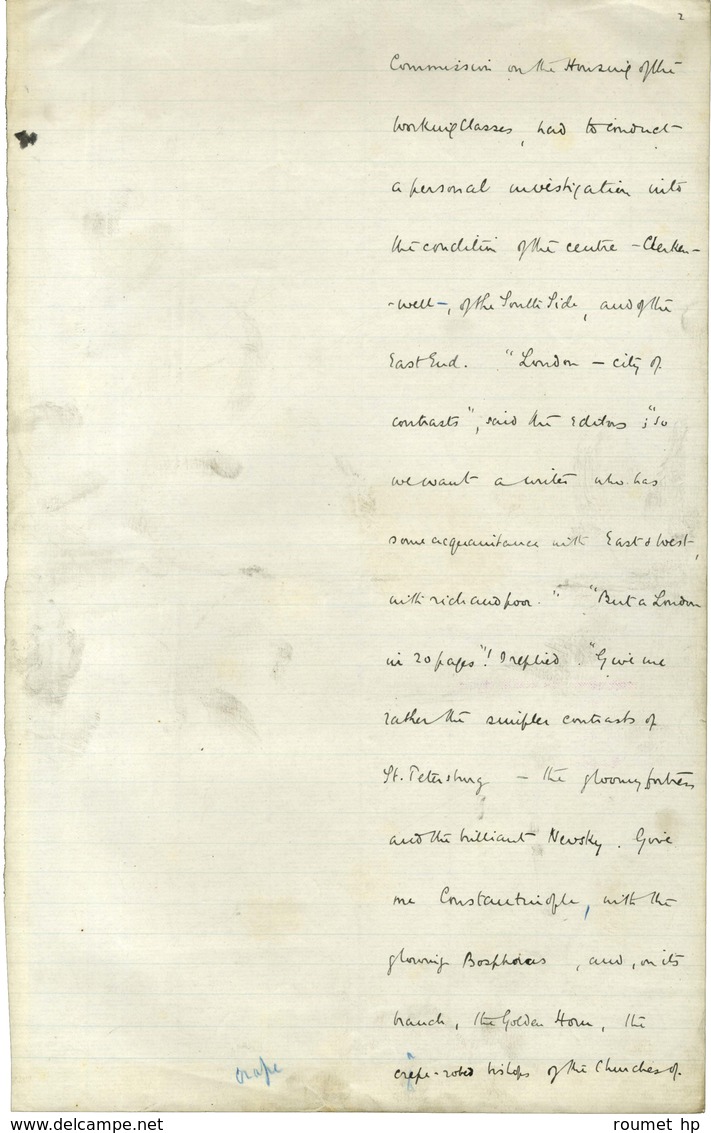 2
Commission on the Housing of the
Working Classes, had to conduct
a personal investigation into
the condition of the centre - Clerken-
-well -, of the South Side, and of the
East End. "London — city of
contrasts", said the Editors ; "so
we want a writer who has
some acquaintance with East & West,
with rich and poor." "But a London
in 20 pages"! I replied. "Give me
rather the simpler contrasts of
St. Petersburg — the gloomy fortress
and the brilliant Newsky. Give
me Constantinople, with the
glowing Bosphorus, and, on its
branch, the Golden Horn, the
crape
a
crêpe-robed bishops of the Churches of
roumet hp